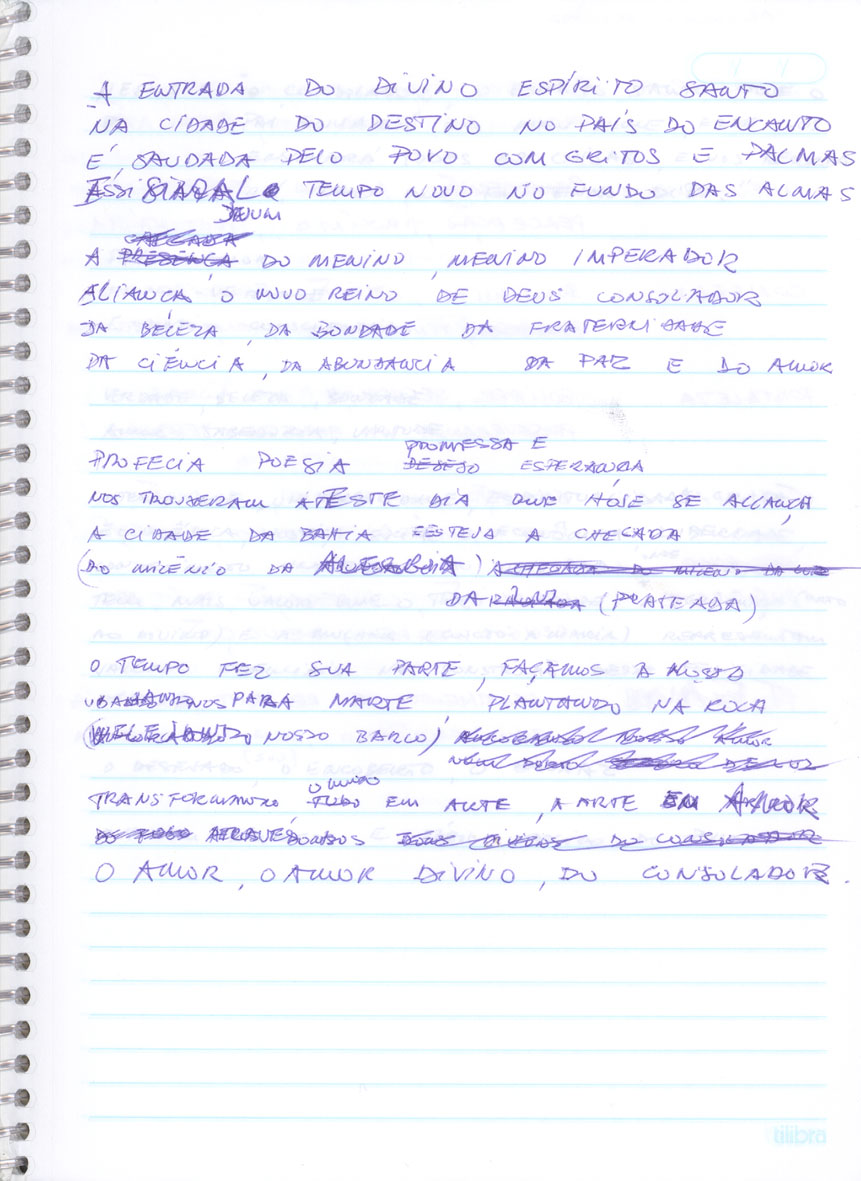 A ENTRADA DO DIVINO ESPÍRITO SANTO
NA CIDADE DO DESTINO NO PAÍS DO ENCANTO
É SAUDADA PELO POVO COM GRITOS E PALMAS
SINAL TEMPO NOVO NO FUNDO DAS ALMAS
DE UM
CHEGADA
A PRESENÇA DO MENINO, MENINO IMPERADOR
O NOVO REINO DE DEUS CONSOLADOR
DA BELEZA, DA BONDADE DA FRATERNIDADE
DA CIÊNCIA, DA ABUNDANCIA DA PAZ E DO AMOR
PROMESSA E
PROFECIA POESIA DESEJO ESPERANÇA
NOS TROUXERAM ATÉ ESTE DIA QUE HOJE SE ALCANÇA
A CIDADE DA BAHIA FESTEJA A CHEGADA
(DO MILÊNIO DA ) A CHEGADA DO MILENIO DA LUZ
DA (PRATEADA)
O TEMPO FEZ SUA PARTE, FAÇAMOS A NOSSA
PARA MARTE, PLANTANDO NA ROÇA
NOSSO BARCO)
O MUNDO
TRANSFORMANDO TUDO EM ARTE, A ARTE EM AMOR
ATRAVÉS DO CONSOLADOR
O AMOR, O AMOR DIVINO, DO CONSOLADOR.
tilibra